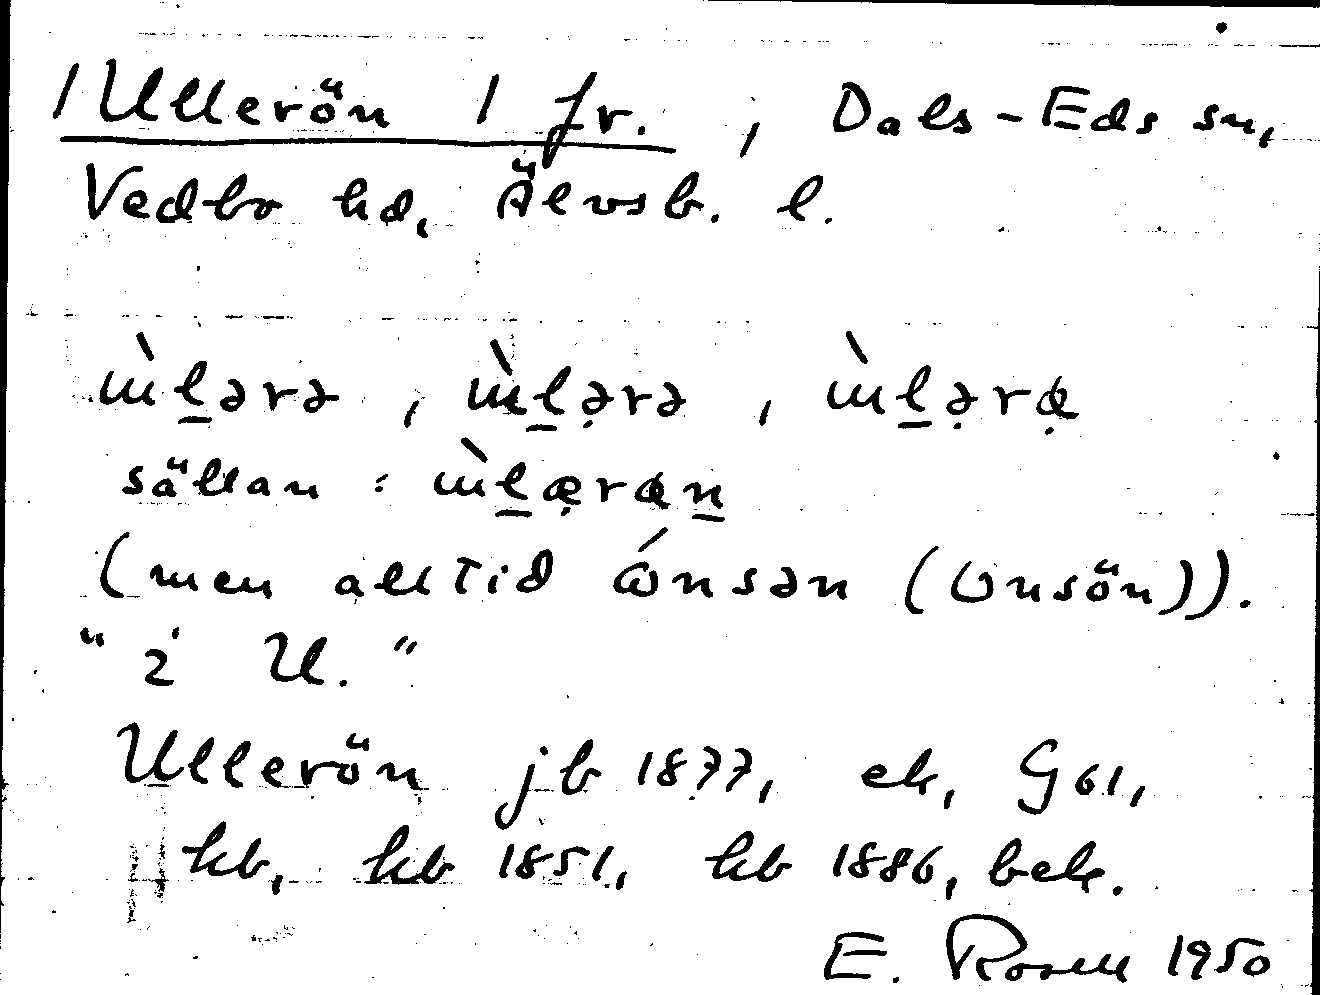 /Ullerön 1 fr., Dals-Eds sn,
Vedbo hd, Älvsb. l.
ùl̲ərə, ùl̲ə̣rə, ùl̲ə̣rœ̣
sällan: ùl̲œ̣rœn̲
(men alltid ónsən (Onsön)).
"i U."
Ullerön jb 1877, ek, G61,
kb, kb 1851, kb 1886, bek.
E. Rosell 1950